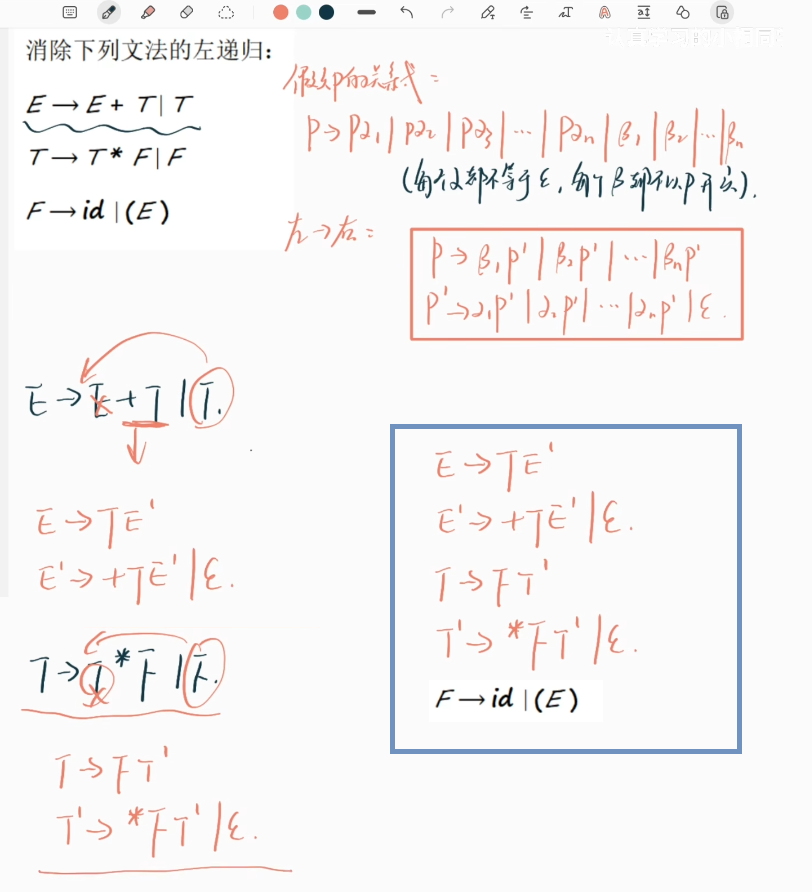 消除下列文法的左递归：
E → E + T | T
T → T * F | F
F → id | (E)
假设P的关系式：
P→Pα₁|Pα₂|Pα₃|…|Pαₙ|β₁|β₂|…|βₙ
(每个α都不等于ε,每个β都不以P开头).
左→右：
P→β₁P'|β₂P'|…|βₙP'
P'→α₁P'|α₂P'|…|αₙP'|ε.
E→E+T|T.
E→TE'
E'→+TE'|ε.
T→T*F|F.
T→FT'
T'→*FT'|ε.
E→TE'
E'→+TE'|ε.
T→FT'
T'→*FT'|ε.
F → id | (E)